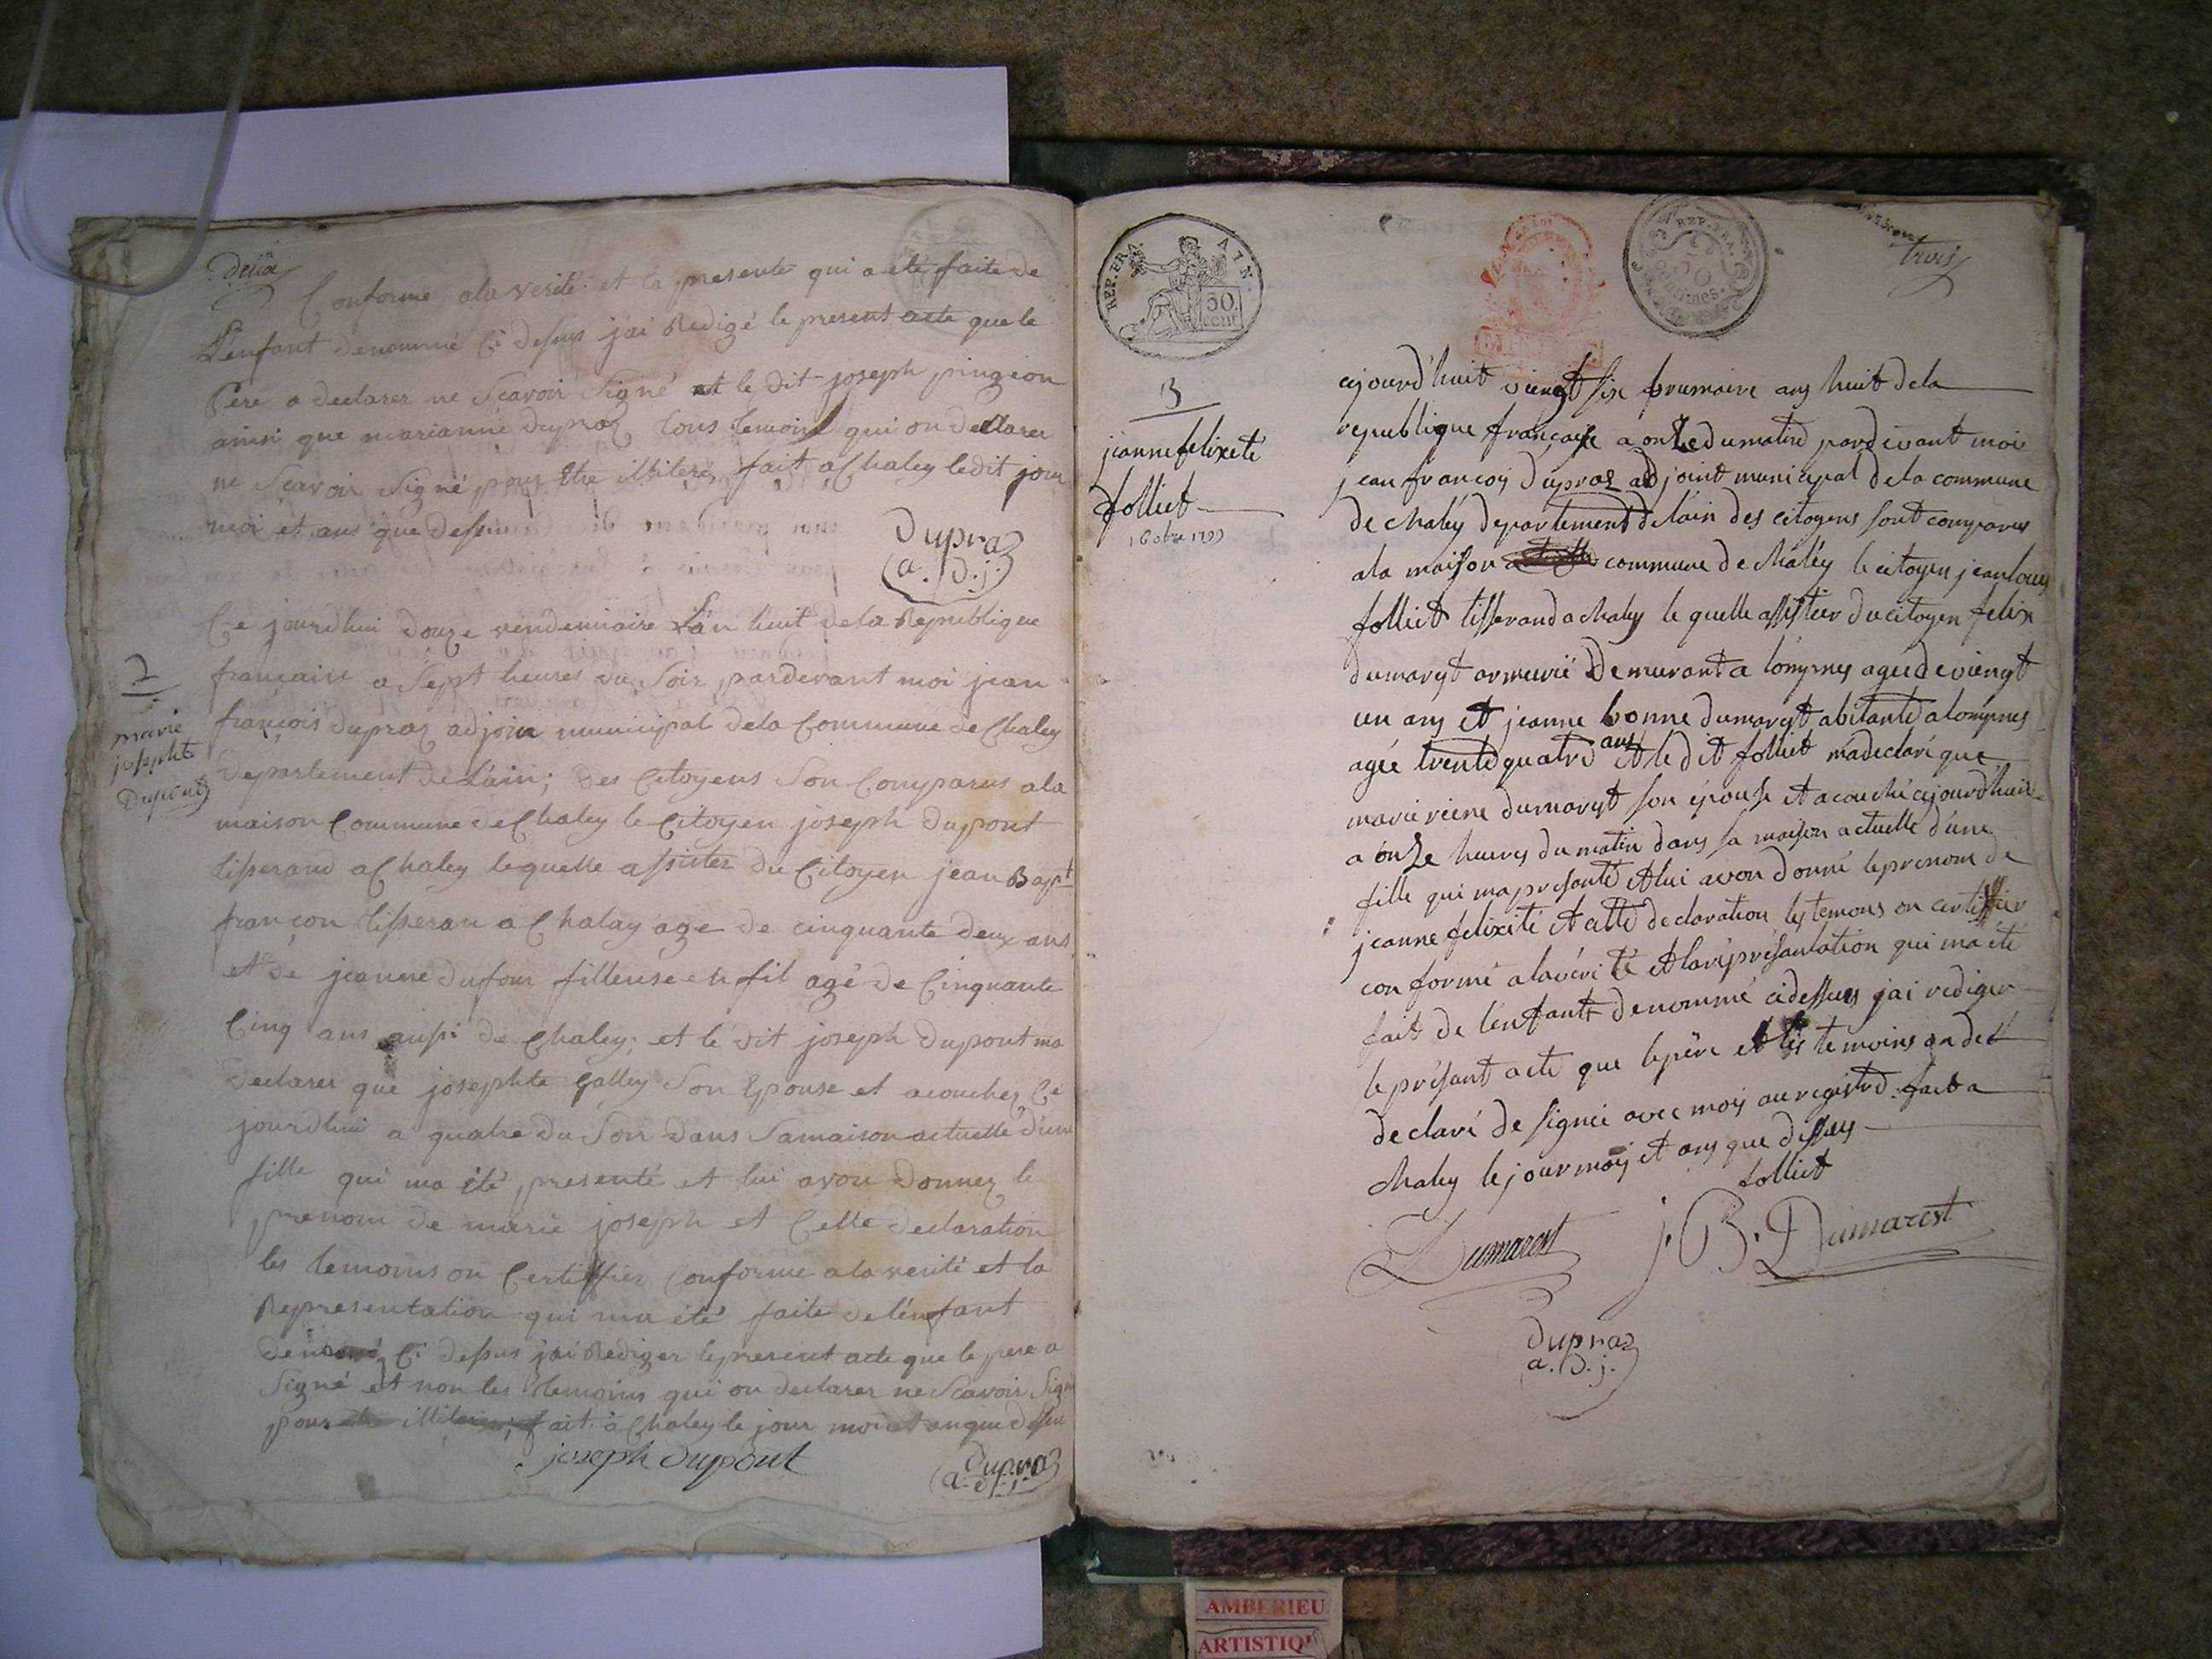 deux
Conforme, ala verité et la presente qui a eté faite de
L'enfant denommé Ci dessus j'ai Redigé le present acte que le
Pere a declarer ne Scavoir Signé et le dit joseph pingeon
ainsi que marianne dupraz tous temoins qui on declarer
ne Scavoir Signé pour Etre illiteré, fait a Chaley ledit jour
moi et ans que dessus
Dupraz
a. d. j.
2
marie
josephte
Dupont
Ce jourdhui douze vendemiaire L'an huit dela Republique
francaise a Sept heures du Soir, pardevant moi jean
françois dupraz adjoin municipal dela Commune de Chaley
Departement de L'ain; des Citoyens Son Comparus ala
maison Commune de Chaley le Citoyen joseph dupont
tisserand a Chaley lequelle assister du Citoyen jean Bapt
françon tisseran a Chalay age de cinquante deux ans
et de jeanne dufour filleuse en fil agé de Cinquante
Cinq ans aussi de Chaley; et le dit joseph dupont ma
declarer que josephte Galley Son Epouse et acoucher Ce
jourdhui a quatre du Soir dans Samaison actuelle d'une
fille qui ma été presenté et lui avon donnez le
prenom de marie joseph et Cette declaration
les temoins on Certiffier Conforme ala verité et la
Representation qui ma été faite de l'enfant
Ci dessus j'ai Rediger le present acte que le pere a
Signé et non les temoins qui on declarer ne Scavoir Sign
pour fait a Chaley le jour moi et an que dessu
joseph dupont
Dupraz
a. d. j.
REP. FRA. AIN.
50
cent
REP. FRA.
50
centimes.
trois
3
jeanne felixeté
folliet
16 9bre 1799
ajourd'huit viengt six brumaire ans huit dela
republique française a onze du matin pardevant moi
jean françois dupraz adjoint municipal dela commune
de chaley departement delain des citoyens sont comparus
ala maison commune de chaley le citoyen jean louis
folliet tisserand a chaley le quelle assistier du citoyen felix
dumaryt armeurié demeurant a lompnes agée de viengt
un ans et jeanne bonne dumaryt abitante a lompnes
agée trente quatre ans et le dit folliet ma declaré que
marie reine dumaryt son épouse et acouché ajourd'huit
a onze heures du matin dans sa maison actuelle d'une
fille qui ma présanté et lui avon donné le prenom de
jeanne felixeté et cette declaration les temons on certiffier
conforme ala vérité et la représantation qui ma été
fait de l'enfant denommé cidessus jai rediger
le présant acte que le père et les temoins on del
declaré de signée avec mois au registre fait a
chaley le jour mois et ans que dessus
folliet
Dumarest
J. B. Dumarest
Dupraz
a. d. j.
AMBERIEU
ARTISTIQU